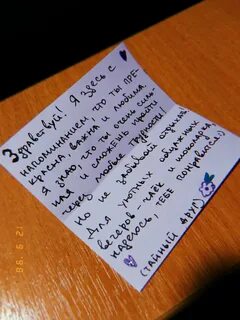 Здравствуй! Я здесь с
напоминанием, что ты пре-
красна, важна и любима.
Я знаю, что ты очень силь-
ная и сможешь пройти
через любые трудности!
Но не забывай отдыхать
Для уютных
вечеров - чаёк и шоколадка
надеюсь, тебе понравится)
(тайный друг)